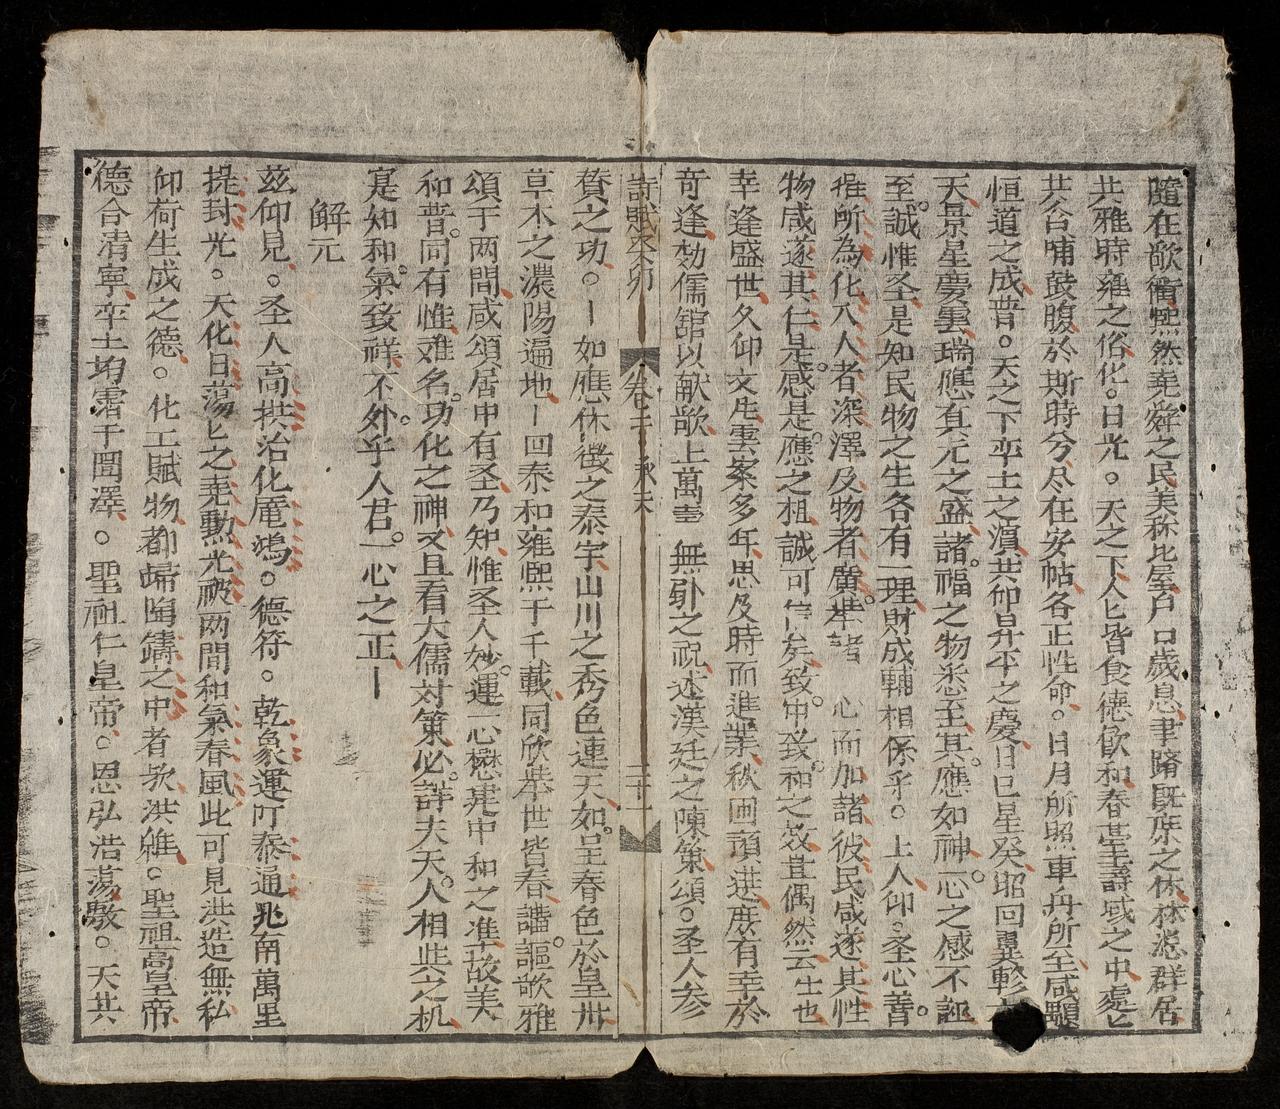 隨在歌衢熙然堯舜之民美称比屋戶口歲息聿臍既庶之休林总群居
共雅時雍之俗化日光。天之下人匕皆食德飲和春臺壽域之中處匕
共含哺鼓腹於斯時兮尽在安帖各正性命。日月所照車舟所至咸顒
恒道之成普。天之下率土之濱共仰昇平之慶日巳星癸昭回翼軫
天景星慶雲瑞應貞元之盛諸福之物悉至其應如神心之感不誣
至誠惟圣是知民物之生各有一理財成輔相係乎。上人仰。圣心善
推所為化入人者深澤及物者廣準諸 心而加諸彼民咸遂其性
物咸遂其仁是感是應之祖誠可信矣致中致和之效豈偶然云生也
幸逢盛世久仰文生雲案多年思及時而進業秋囬預選庶有幸於
奇逢効儒舘以献歌上萬壽 無疆之祝述漢廷之陳策頌。圣人参
詩賦癸卯 卷二 承天 二十一
賛之功。丨如應休徵之泰宇山川之秀色連天如呈春色於皇卅
草木之濃陽遍地丨回泰和雍熙于千載同欣舉世皆春謳歌雅
頌于两間咸頌居中有圣乃知惟圣人妙運一心懋建中和之准故美
和普同有惟难名功化之神又且看大儒対策必詳夫天人相些之机
寔知和氣致祥不外乎人君一心之正丨
解元
茲仰見。圣人高拱治化厖鴻。德符。乾象運叶泰通兆南萬里
提封光。天化日蕩匕之堯勲光被两間和氣春風此可見洪造無私
仰荷生成之德。化工賦物都歸陶鑄之中者欤洪雖。聖祖高皇帝
德合清寧率土均霑千囿澤。聖祖仁皇帝。恩弘浩蕩敷。天共